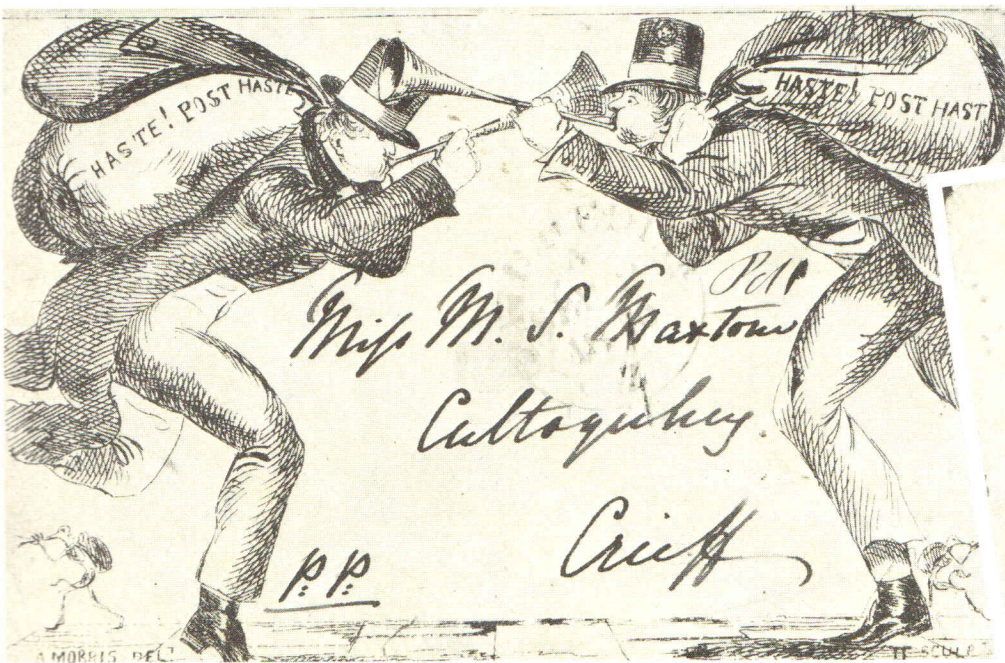 HASTE! POST HASTE
HASTE! POST HAST
Miss M. S. Maxtone
Cultoquhey
Crieff
P. P.
A MORRIS DELT
SCULP